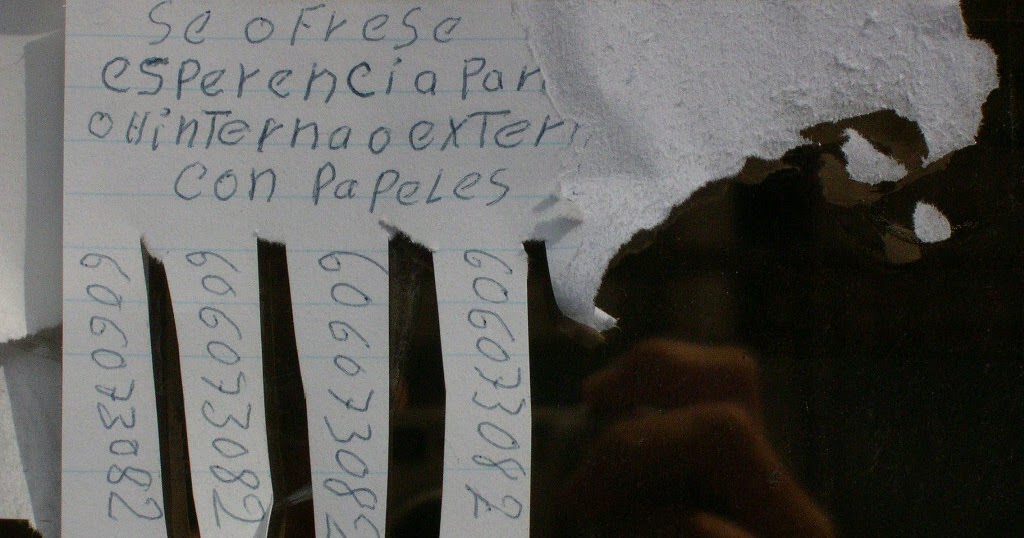 Se oFrese
esperencia Par
o H interna o exTer
con Papeles
606073082
606073082
606073082
606073082